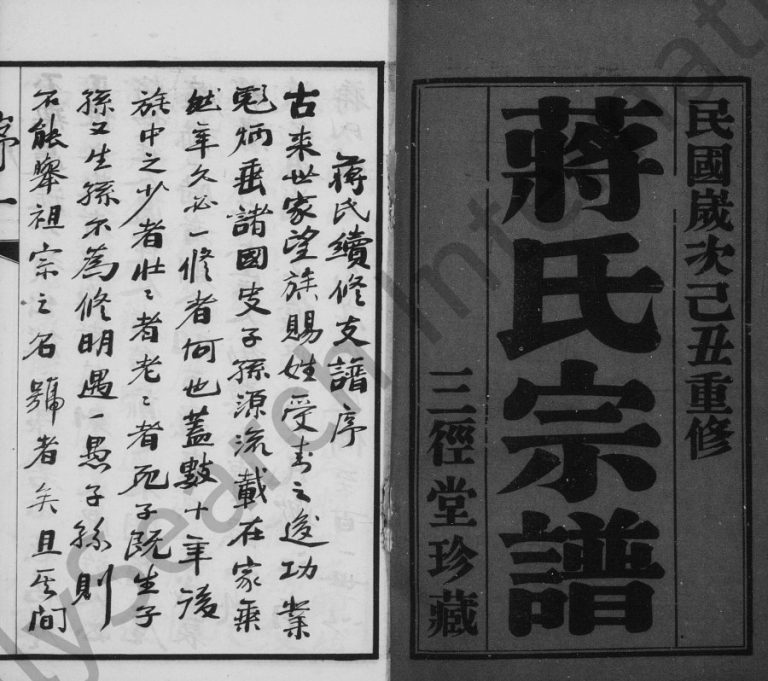 民國歲次己丑重修
蔣氏宗譜
三徑堂珍藏
蔣氏續修支譜序
古來世家望族賜姓受之後功業
彪炳垂諸國史子孫源流載在家乘
然年久必一修者何也蓋數十年後
族中之少者壯〻者老〻者死子既生子
孫又生孫不為修明遇一愚子孫則
不能舉祖宗之名號者矣且其間
序一
FamilySearch International